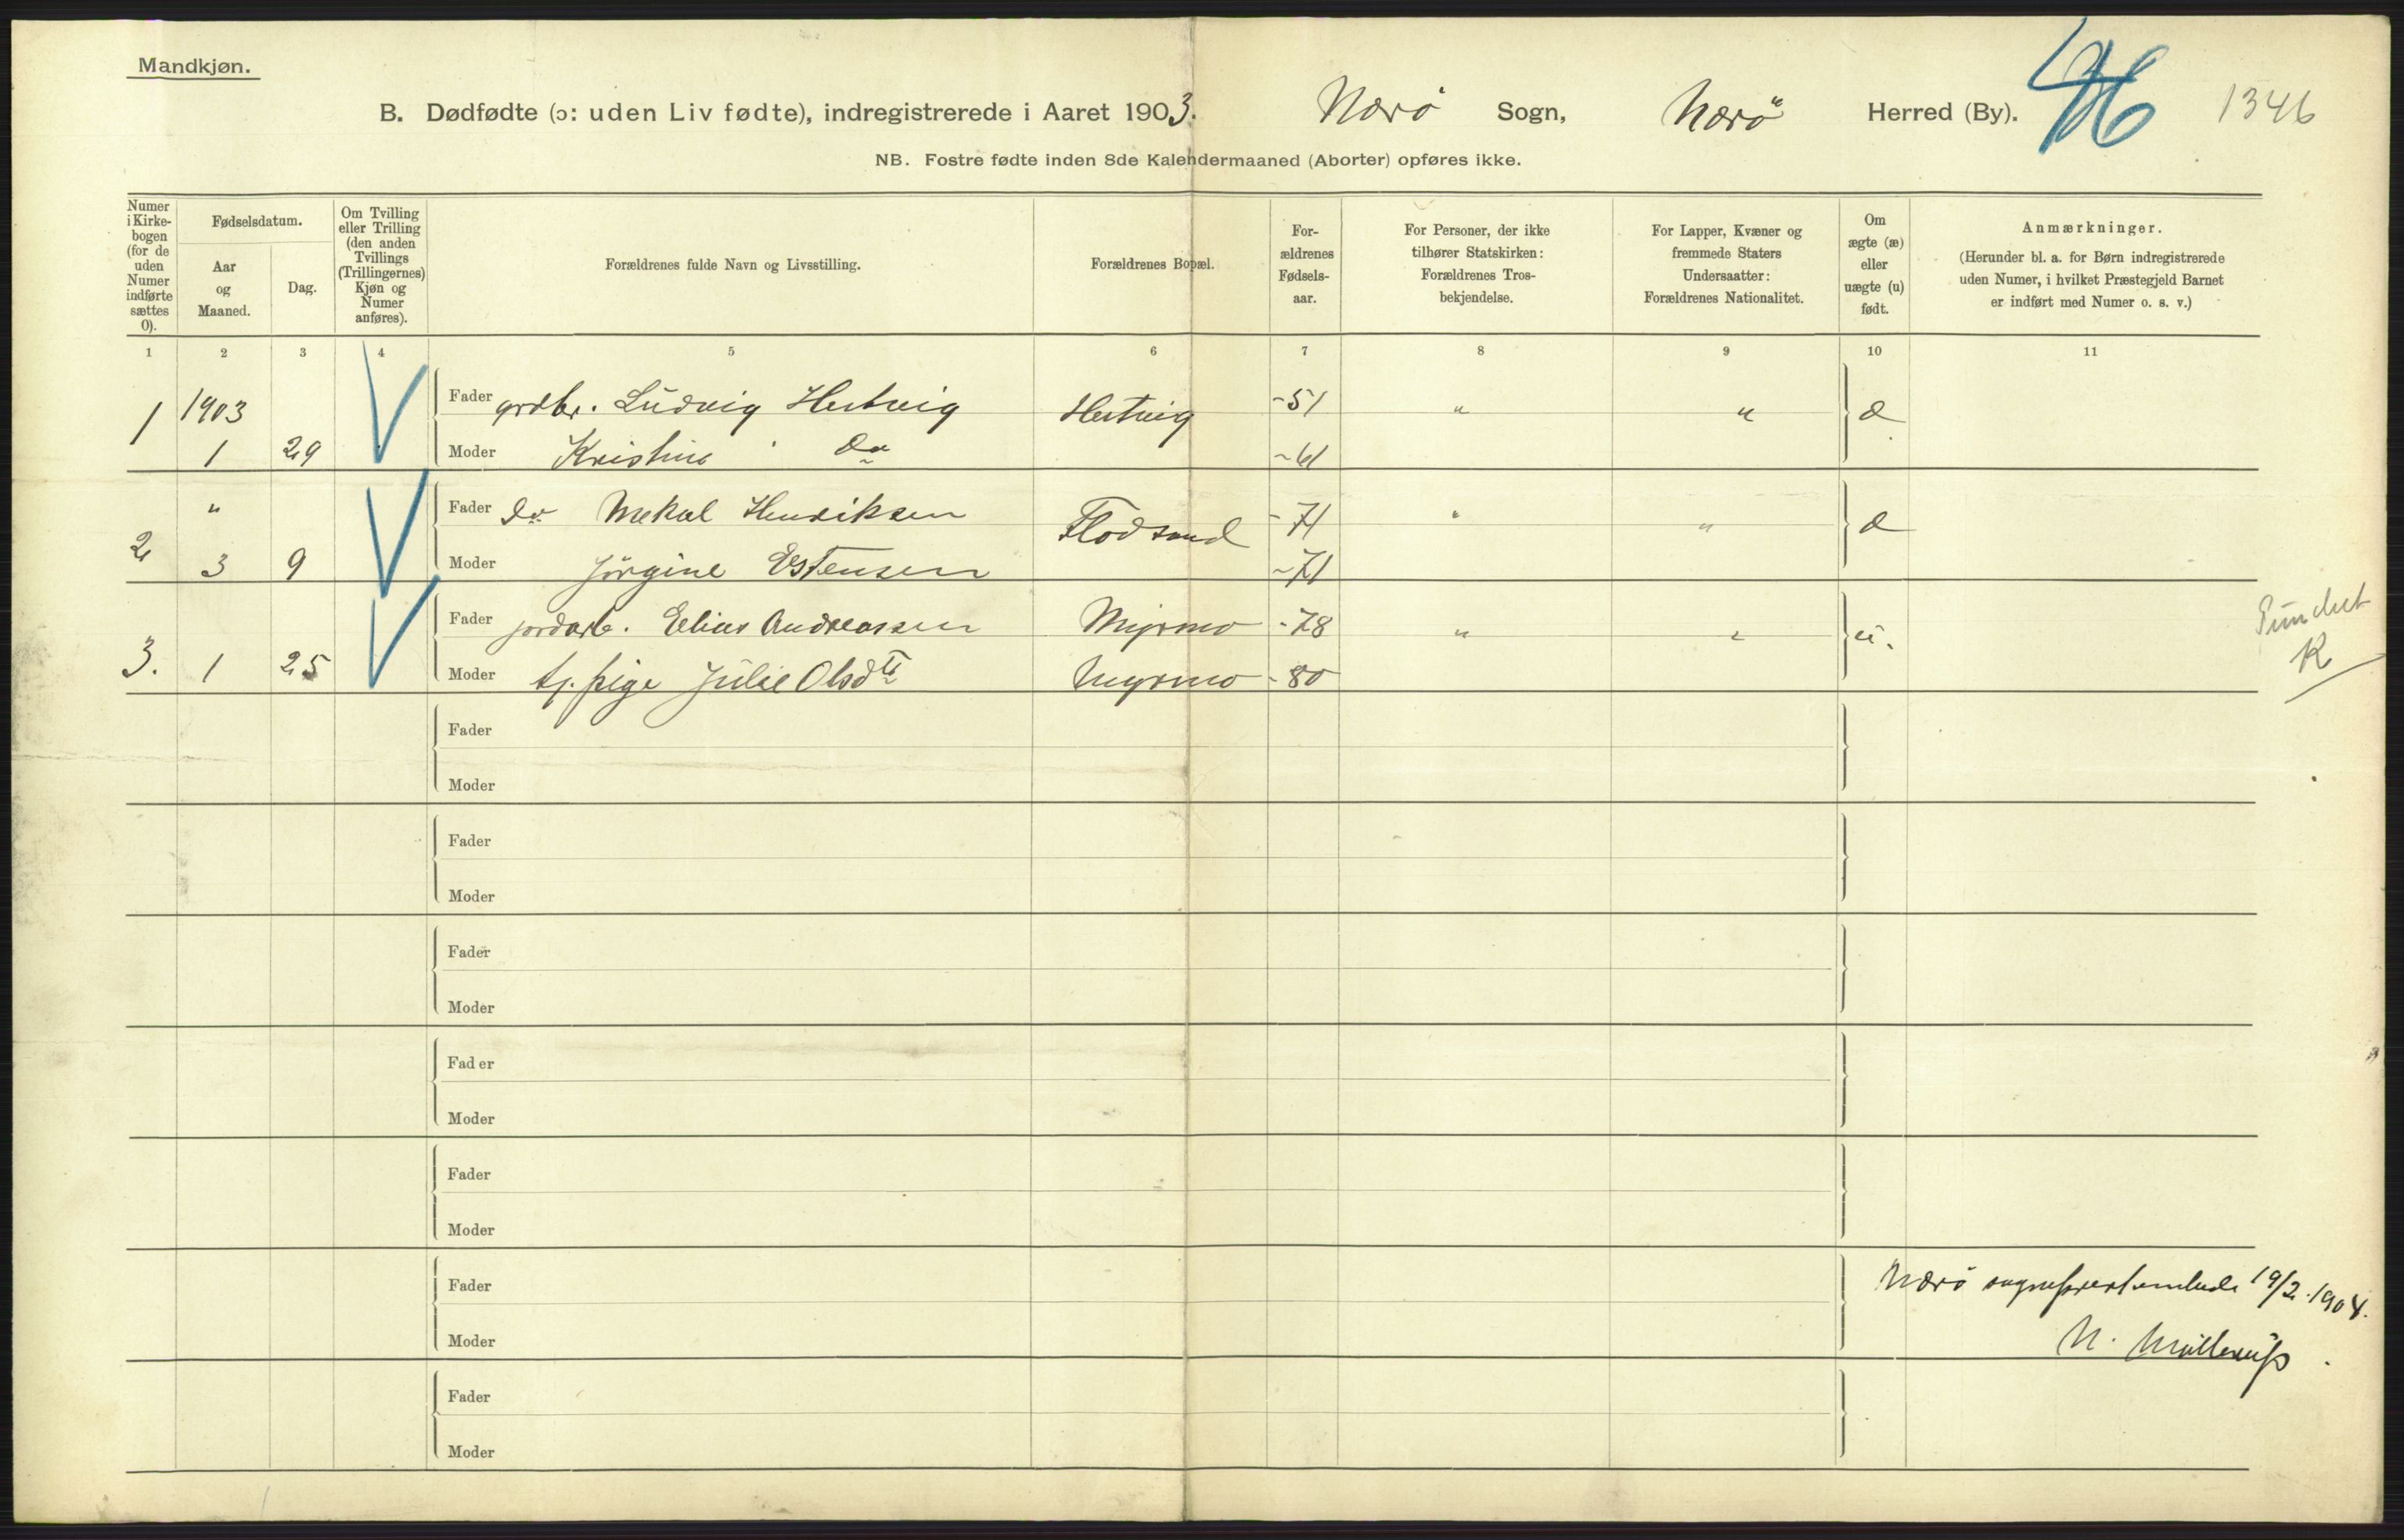 Mandkjøn.
B. Dødfødte (ɔ: uden Liv fødte), indregistrerede i Aaret 1903. Nærö Sogn, Nærö Herred (By). 46 1346
NB. Fostre fødte inden 8de Kalendermaaned (Aborter) opføres ikke.
Numer i Kirke-bogen (for de uden Numer indførte sættes 0).
Fødselsdatum.
Aar og Maaned.
Dag.
Om Tvilling eller Trilling (den anden Tvillings (Trillingernes) Kjøn og Numer anføres).
Forældrenes fulde Navn og Livsstilling.
Forældrenes Bopæl.
For-ældrenes Fødsels-aar.
For Personer, der ikke tilhører Statskirken: Forældrenes Tros-bekjendelse.
For Lapper, Kvæner og fremmede Staters Undersaatter: Forældrenes Nationalitet.
Om ægte (æ) eller uægte (u) født.
Anmærkninger.
(Herunder bl. a. for Børn indregistrerede uden Numer, i hvilket Præstegjeld Barnet er indført med Numer o. s. v.)
1 2 3 4 5 6 7 8 9 10 11
1 1903 Fader grdbr. Ludvig Hertvig Hertvig -51 " " æ
1 29 Moder Kristine Do -61
2 " Fader Do Mekal Henriksen Flodsand -71 " " æ
3 9 Moder Jörgine Estensen -71
3. Fader jordarb. Elias Andreassen Myrmo -78 " " u.
1 25 Moder tj. pige Julie Olsdtr Myrmo -80
K
Fader
Moder
Fader
Moder
Fader
Moder
Fader
Moder
Fader
Moder
Fader
Moder
Nærö sogneprestembede 19/2. 1904.
N. Müllerup
Fader
Moder